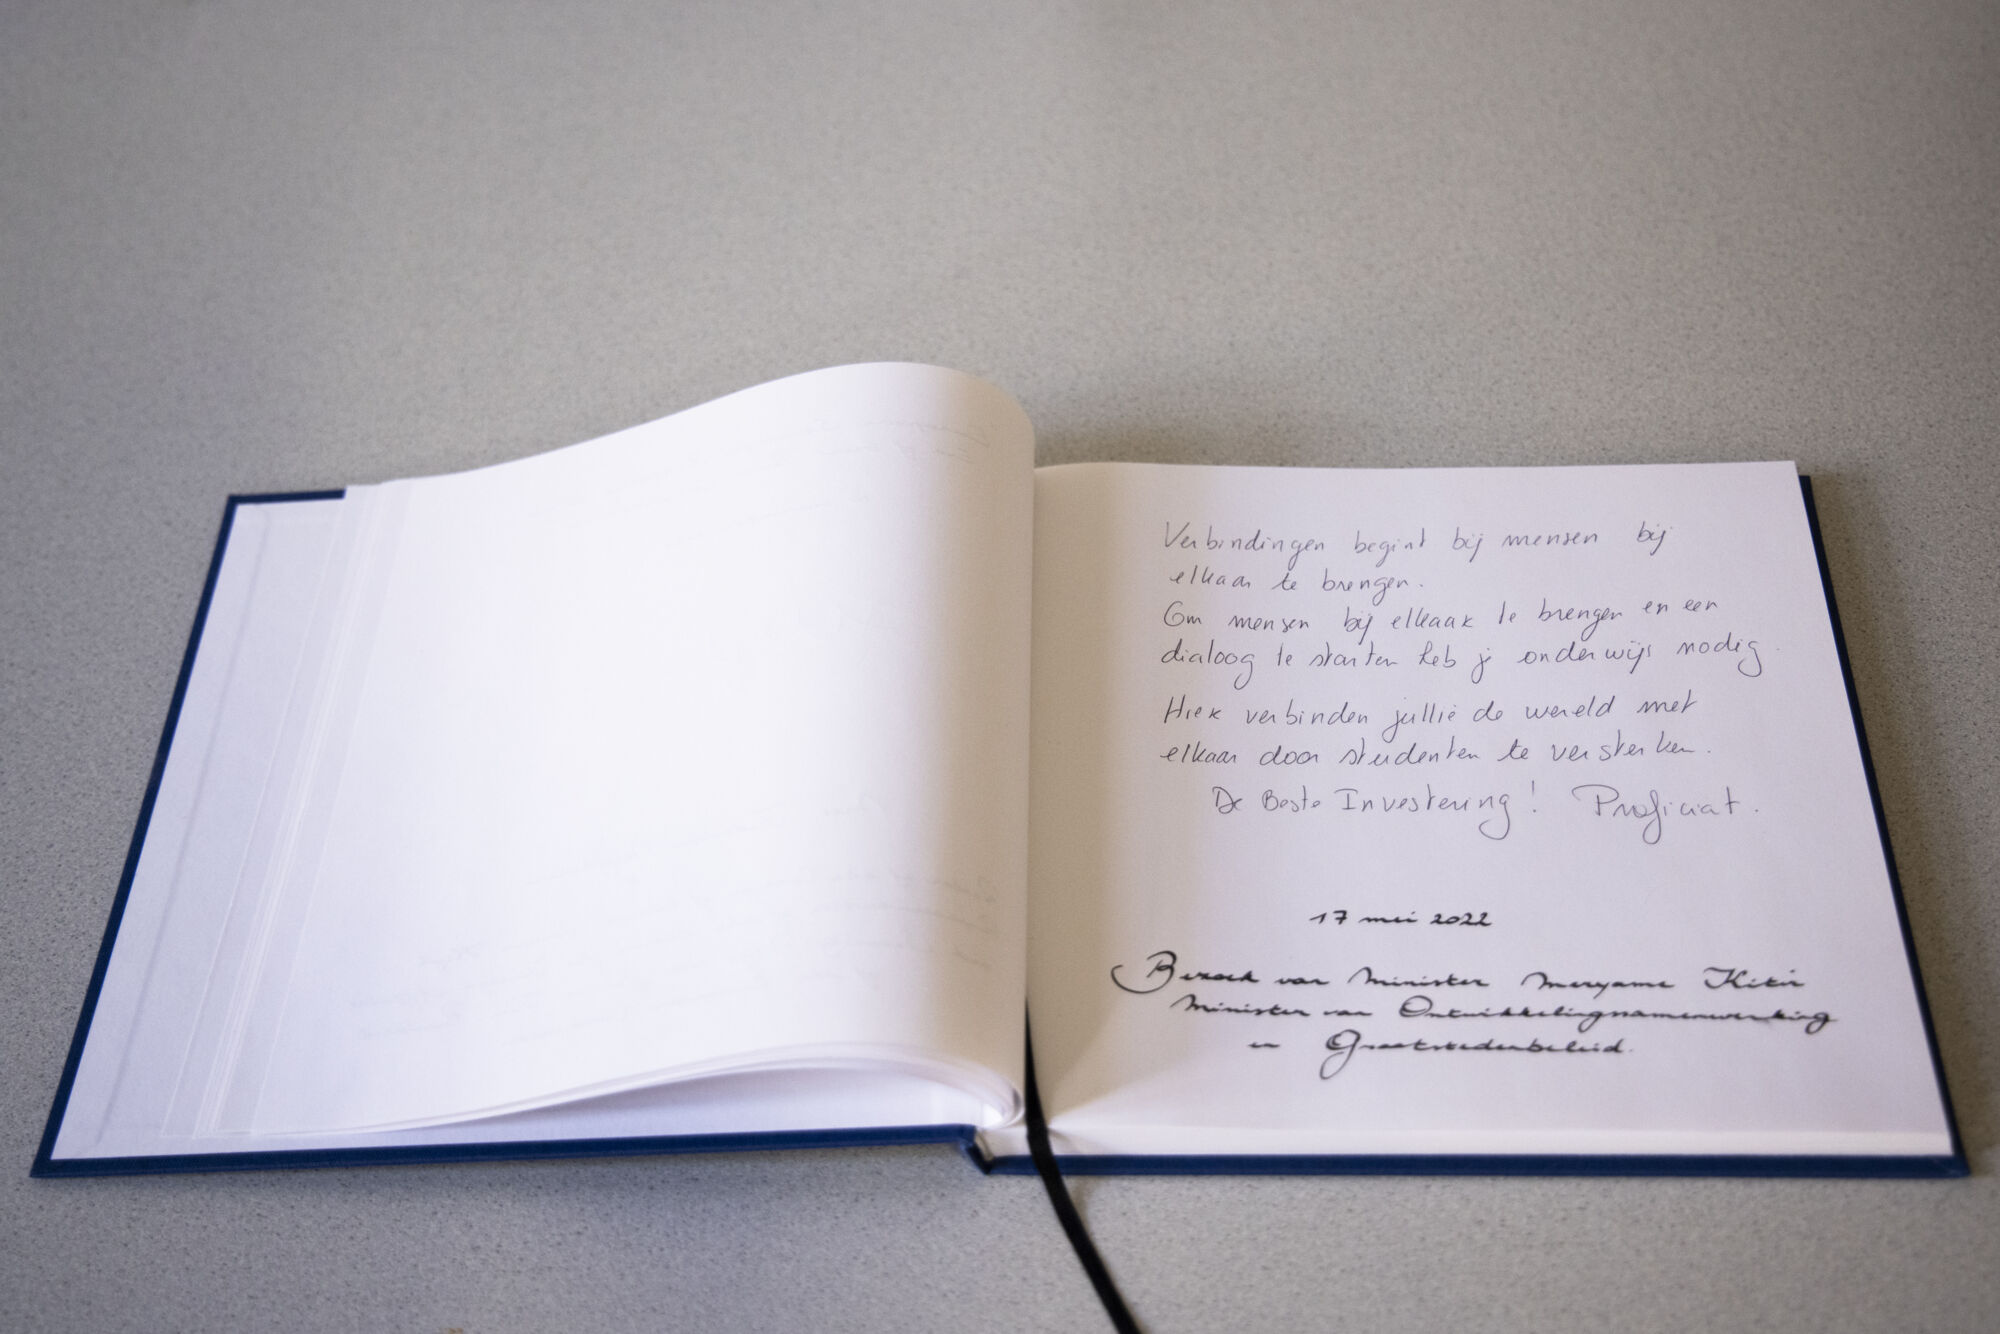 Verbindingen begint bij mensen bij
elkaar te brengen.
Om mensen bij elkaar te brengen en een
dialoog te starten heb je onderwijs nodig.
Hier verbinden jullie de wereld met
elkaar door studenten te versterken.
De Beste Investering! Proficiat.
17 mei 2022
Bezoek van Minister Meryame Kitir
Minister van Ontwikkelingsamenwerking
en Grootstedenbeleid.